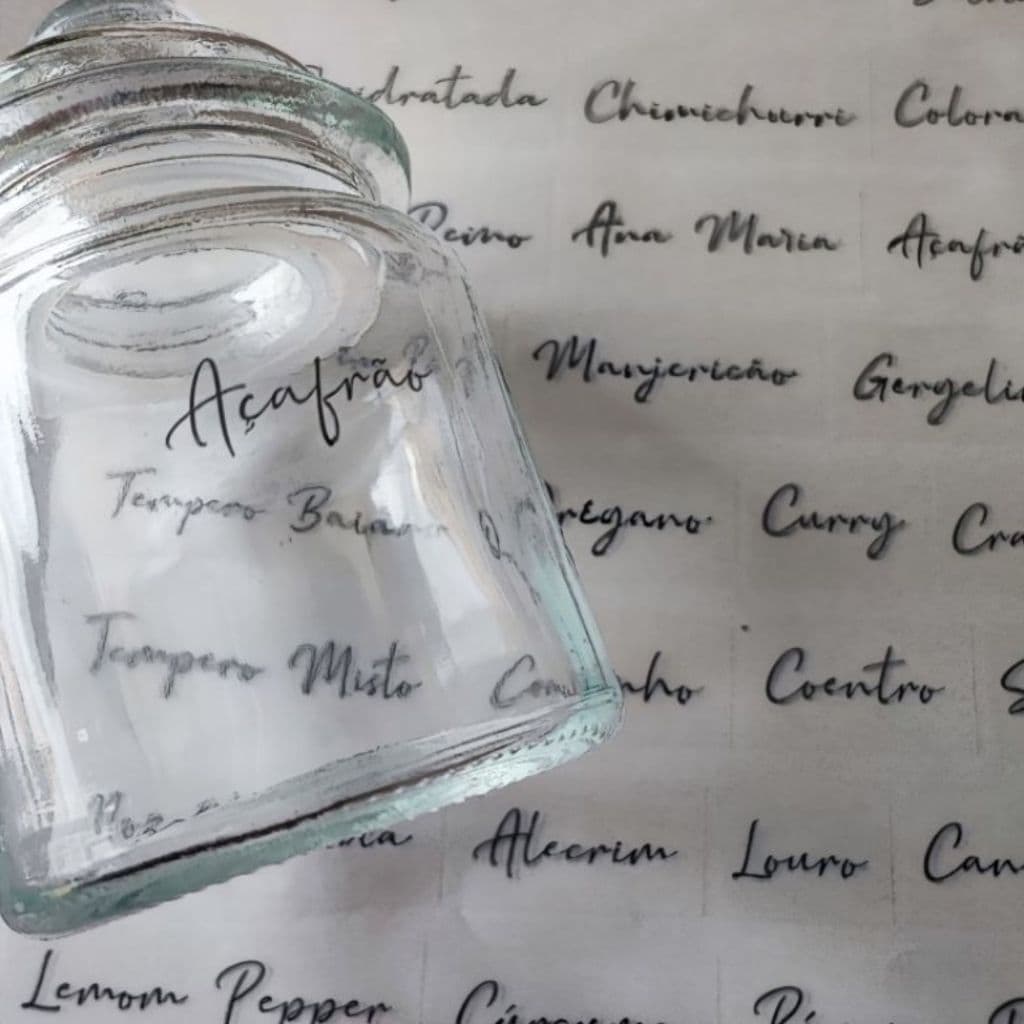 idratada Chimichurri Colora
Reino Ana Maria Açafrã
Açafrão
Manjericão Gergeli
Tempero Baiano Orégano Curry Cra
Tempero Misto Cominho Coentro
Alecrim Louro Can
Lemom Pepper